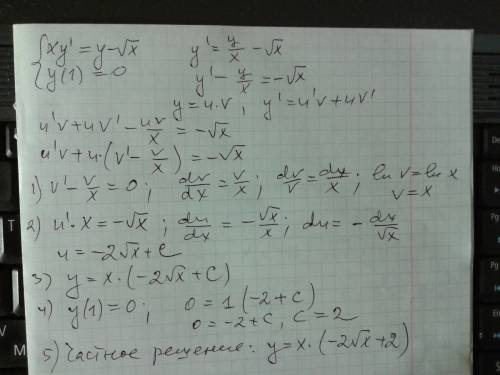 {xy' = y - √x        y' = y/x - √x
{y(1) = 0        y' - y/x = -√x
y = u·v, y' = u'v + uv'
u'v + uv' - uv/x = -√x
u'v + u·(v' - v/x) = -√x
1) v' - v/x = 0; dv/dx = v/x; dv/v = dx/x; ln v = ln x
v = x
2) u'·x = -√x; du/dx = -√x/x; du = -dx/√x
u = -2√x + c
3) y = x·(-2√x + C)
4) y(1) = 0; 0 = 1(-2 + C)
0 = -2 + C, C = 2
5) Частное решение: y = x·(-2√x + 2)